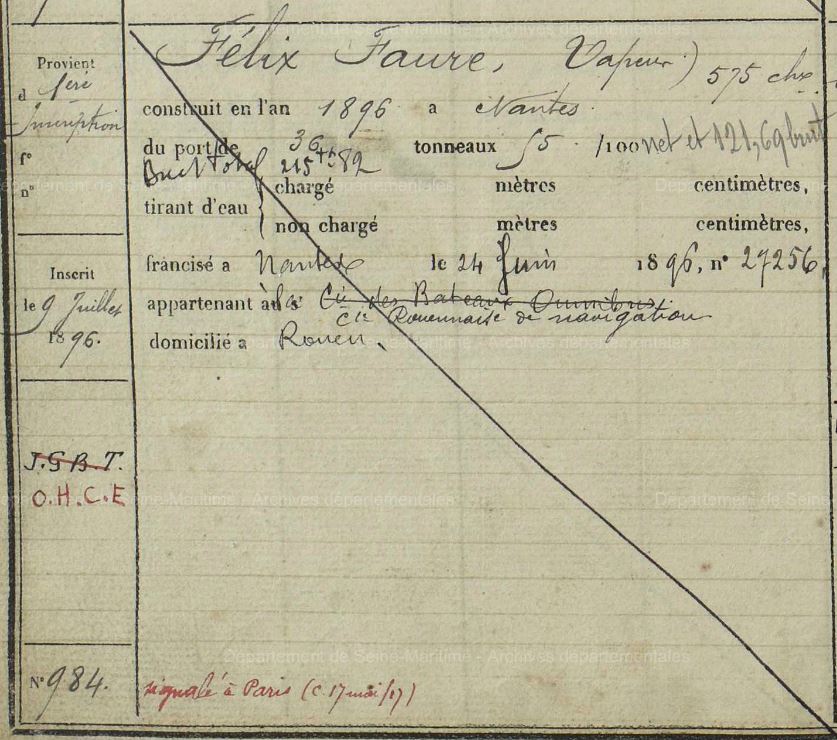 Félix Faure, Vapeur) 575 chx
Provient
d 1ère
Inscription
f°
n°
construit en l'an 1896 a Nantes.
du port de 36 tonneaux 55 /100 net et 121,69 brut
Brut total 215 tx 82
tirant d'eau { chargé mètres centimètres,
non chargé mètres centimètres,
Inscrit
le 9 Juillet
1896.
francisé a Nantes le 24 Juin 1896, n° 27256,
appartenant à la Cie des Bateaux Omnibus
Cie Rouennaise de navigation
domicilié a Rouen.
J.G.B.T.
O.H.C.E
N° 984.
signalé à Paris (C. 17 mai /07)
Département de Seine-Maritime - Archives départementales